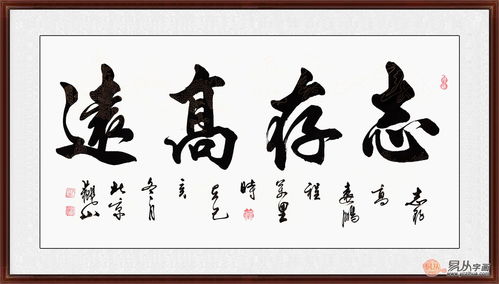 志存高遠
志存高遠鵬程萬里時己亥冬月北京
易从字画